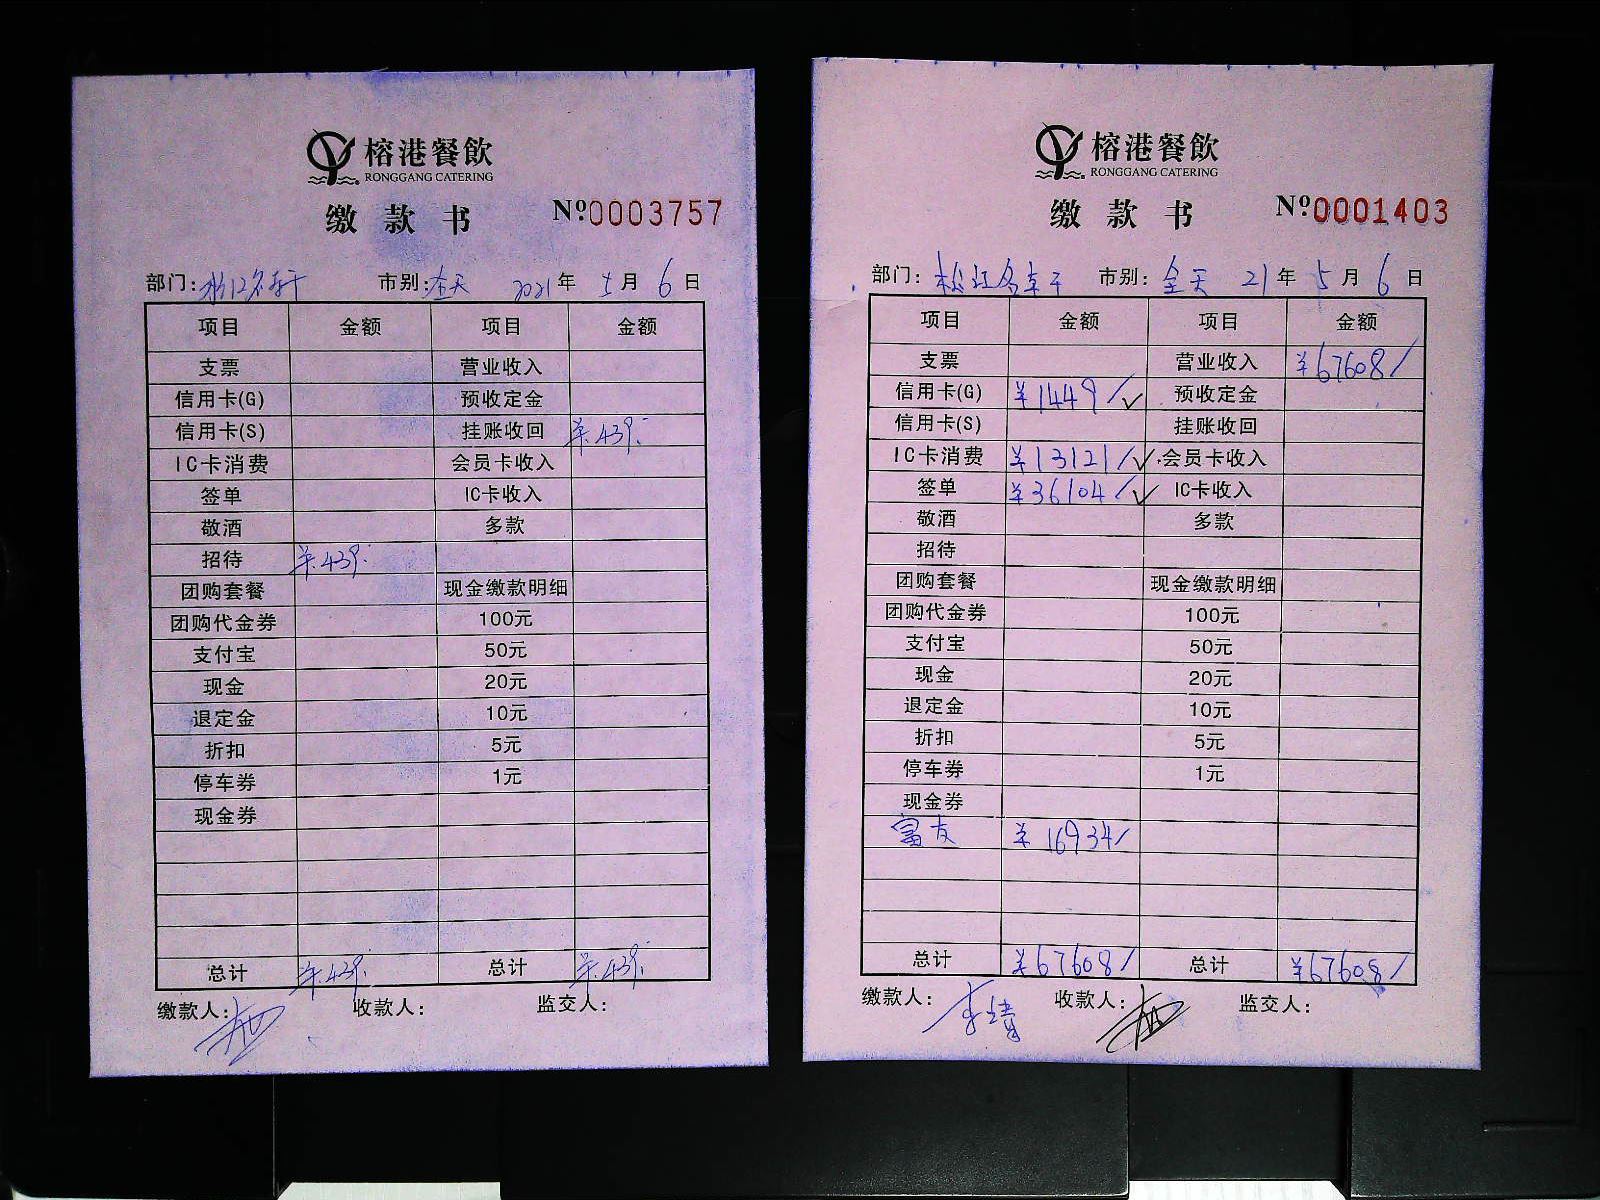 榕港餐飲
RONGGANG CATERING
缴款书 №0003757
部门: 市别:全天 2021年5月6日
项目 金额 项目 金额
支票 营业收入
信用卡(G) 预收定金
信用卡(S) 挂账收回 ¥439.
IC卡消费 会员卡收入
签单 IC卡收入
敬酒 多款
招待 ¥439.
团购套餐 现金缴款明细
团购代金券 100元
支付宝 50元
现金 20元
退定金 10元
折扣 5元
停车券 1元
现金券
总计 ¥439. 总计 ¥439.
缴款人: 收款人: 监交人:
榕港餐飲
RONGGANG CATERING
缴款书 №0001403
部门:松江名车干 市别:全天 21年5月6日
项目 金额 项目 金额
支票 营业收入 ¥67608/
信用卡(G) ¥1449/✓ 预收定金
信用卡(S) 挂账收回
IC卡消费 ¥13121/✓ 会员卡收入
签单 ¥36104/✓ IC卡收入
敬酒 多款
招待
团购套餐 现金缴款明细
团购代金券 100元
支付宝 50元
现金 20元
退定金 10元
折扣 5元
停车券 1元
现金券
富友 ¥16934/
总计 ¥67608/ 总计 ¥67608/
缴款人: 收款人: 监交人: